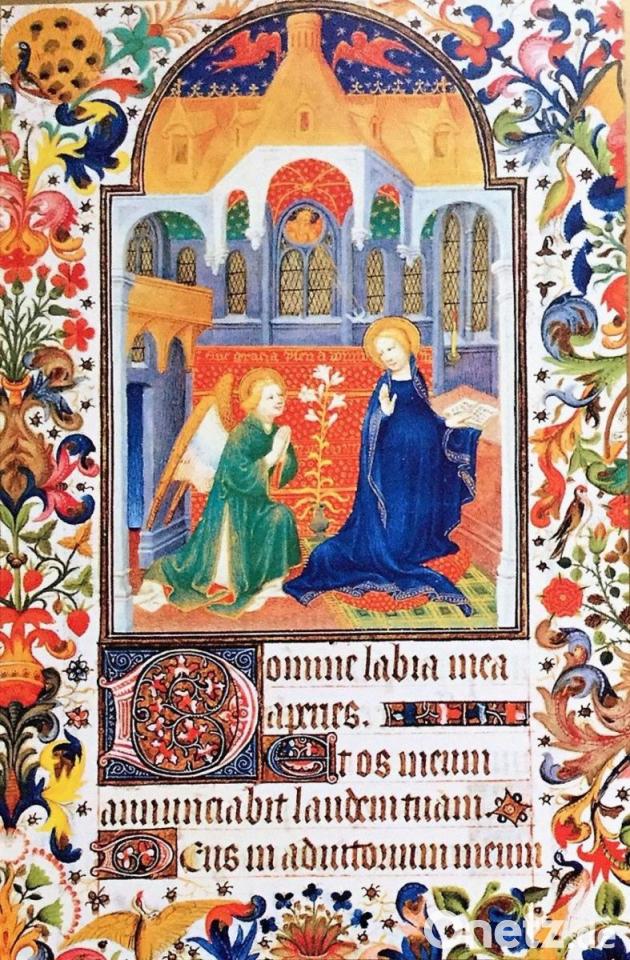 aue gracia plena domin
Domine labia mea
aperies.
Et os meum
annunciabit laudem tuam
Deus in adiutorium meum
Onetz.de